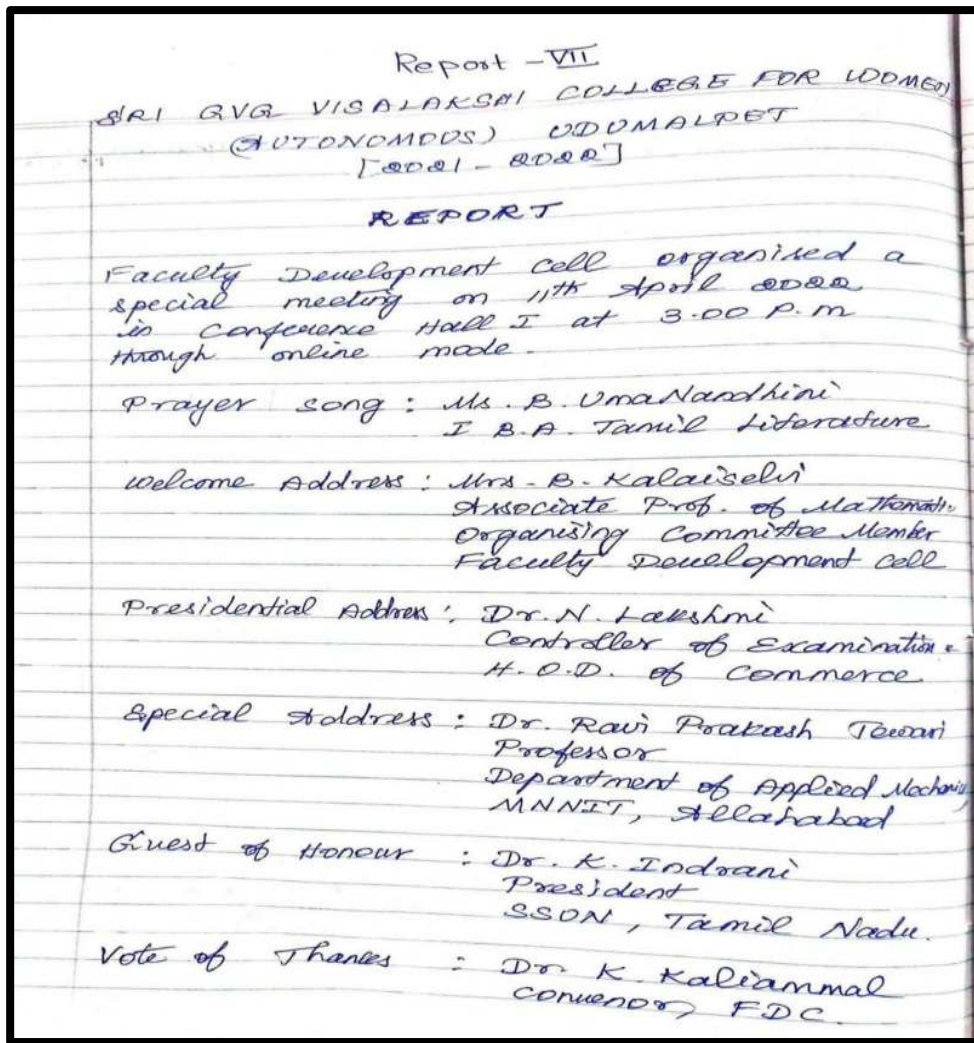 Report - VII
SRI GVG VISALAKSHI COLLEGE FOR WOMEN
(AUTONOMOUS) UDUMALPET
[2021 - 2022]
REPORT
Faculty Development cell organised a
special meeting on 11th April 2022
in Conference Hall I at 3.00 P.m
through online mode.
Prayer song : Ms. B. UmaNandhini
I B.A. Tamil Literature
Welcome Address : Mrs. B. Kalaiselvi
Associate Prof. of Mathematics
Organising Committee Member
Faculty Development cell
Presidential Address : Dr. N. Lakshmi
Controller of Examination
H.O.D. of Commerce
Special Address : Dr. Ravi Prakash Tewari
Professor
Department of Applied Mechanics
MNNIT, Allahabad
Guest of Honour : Dr. K. Indrani
President
SSON, Tamil Nadu.
Vote of Thanks : Dr. K. Kaliammal
Convenor, FDC.